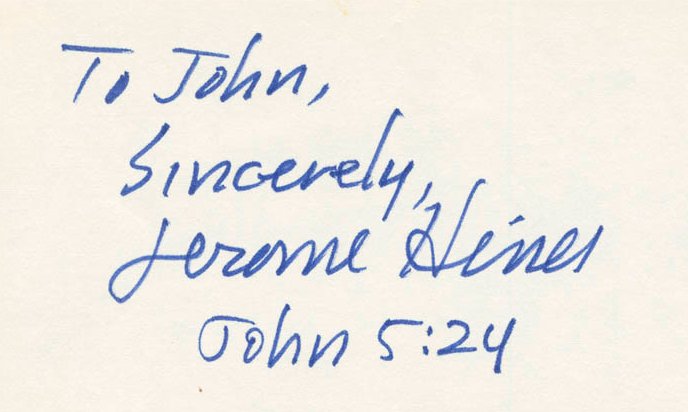 To John,
Sincerely,
Jerome Hines
John 5:24